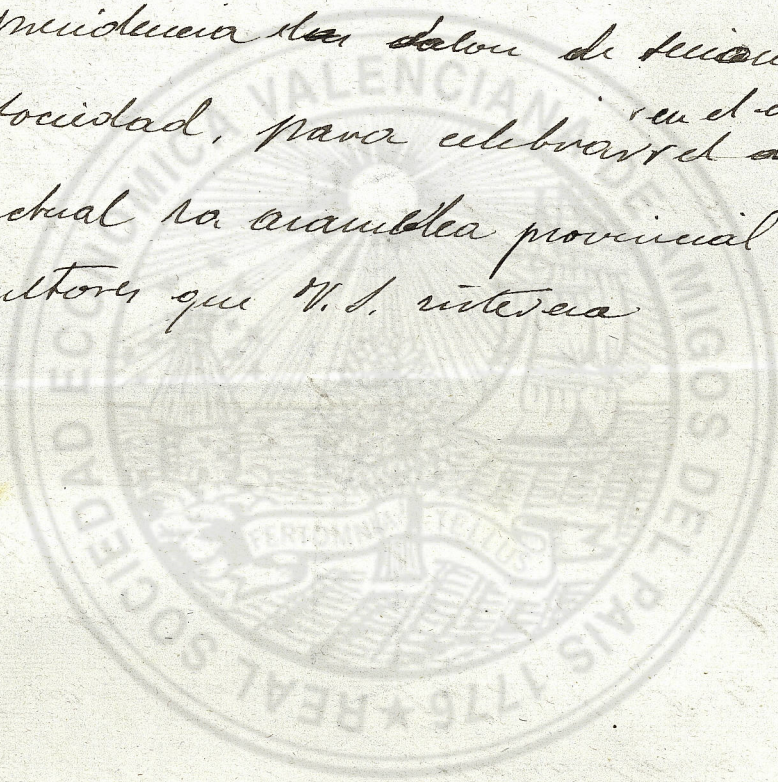 presidencia el salon de sesion
sociedad, para celebrar en el d
ctual la asamblea provincial
ultores que V. S. interesa
REAL SOCIEDAD ECONOMICA VALENCIANA DE AMIGOS DEL PAIS 1776
FERT OMNIA TELLUS